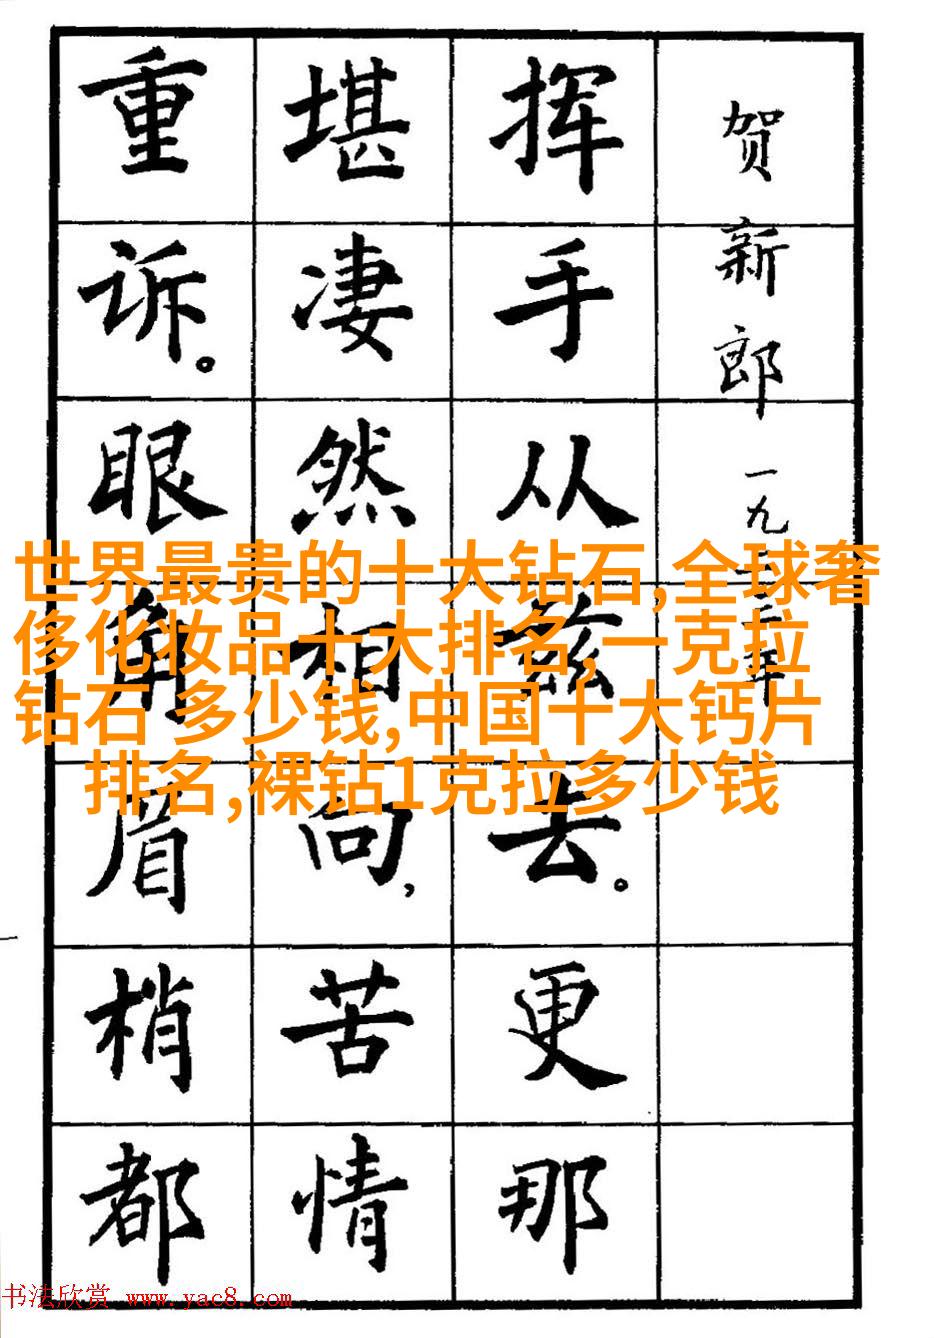 贺新郎 一九二三年
挥手从兹去。更那
堪凄然相向,苦情
重诉。眼角眉梢都
世界最贵的十大钻石,全球奢
侈化妆品十大排名,一克拉
钻石 多少钱,中国十大钙片
排名,裸钻1克拉多少钱
书法欣赏 www.yac8.com